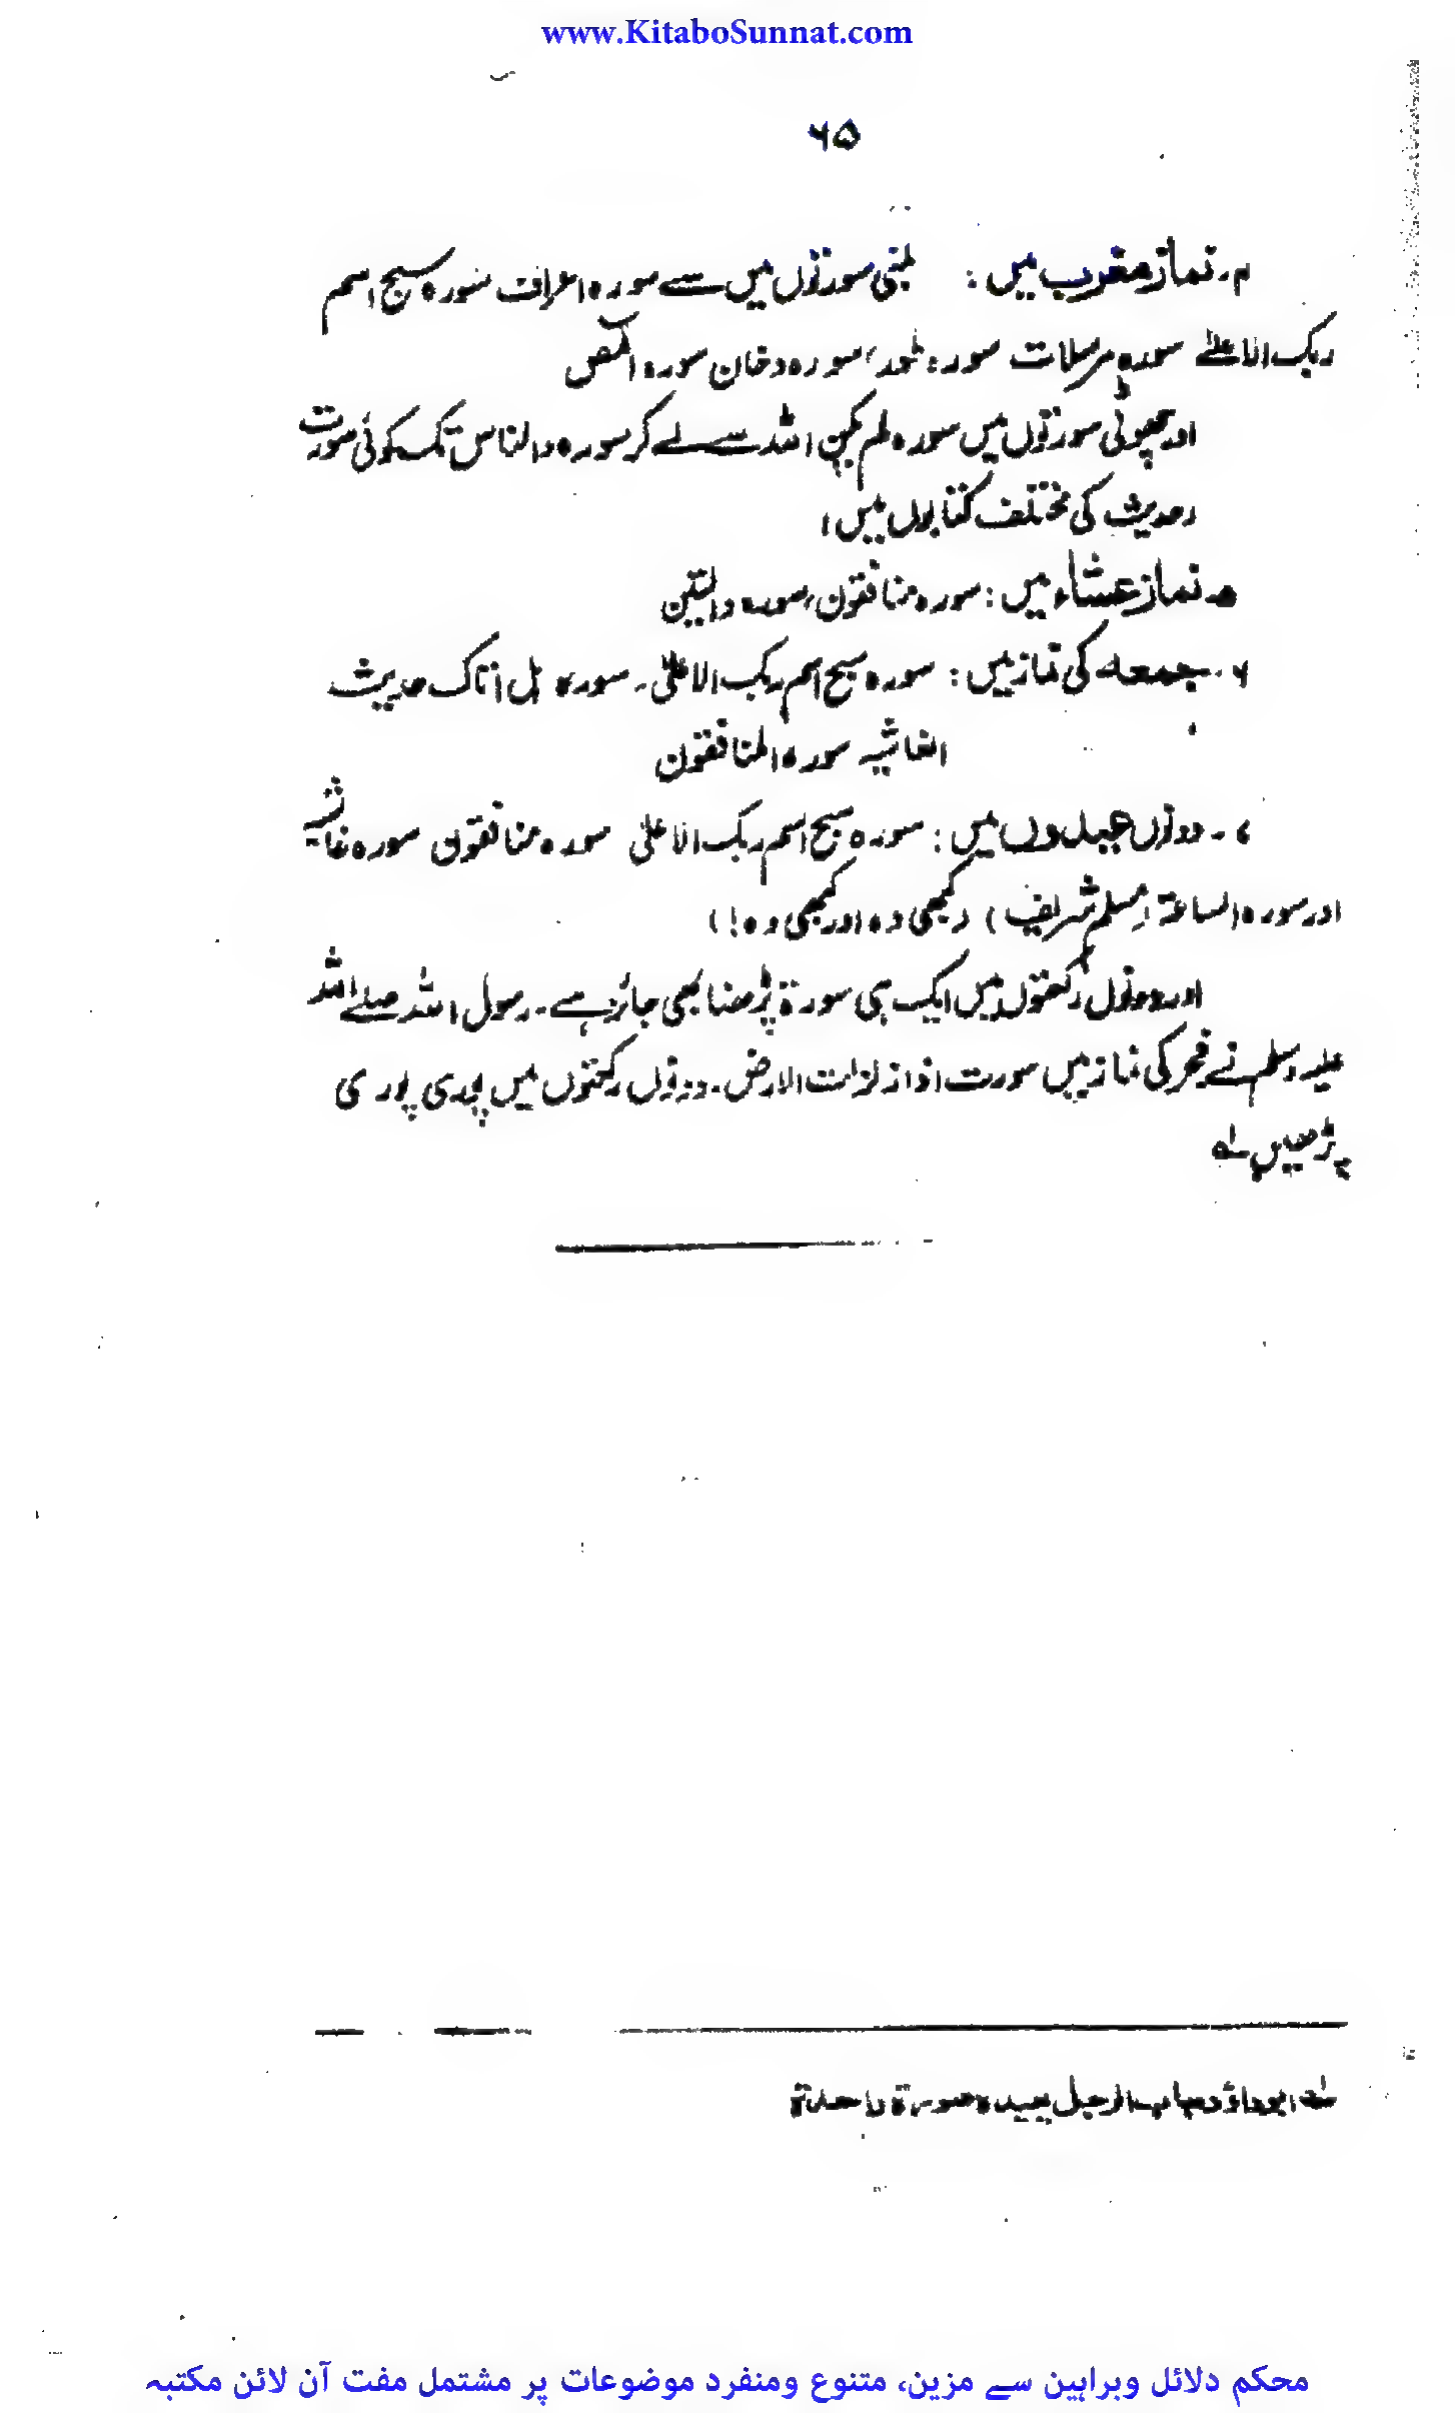 www.KitaboSunnat.com
۶۵
۴۔ نماز مغرب میں : لمبی سورتوں میں سے سورہ اعراف سورہ سبح اسم
ربک الاعلےٰ سورہ مرسلات سورہ طور، سورہ دخان سورہ المص
اور چھوٹی سورتوں میں سورہ لم یکن اللہ سے لے کر سورہ والناس تک کوئی سورت
(حدیث کی مختلف کتابوں میں)
۵۔ نماز عشاء میں : سورہ منافقون، سورہ والتین
۶۔ جمعہ کی نماز میں : سورہ سبح اسم ربک الاعلیٰ۔ سورہ ہل اتاک حدیث
الغاشیہ سورہ المنافقون
۷۔ دونوں عیدوں میں : سورہ سبح اسم ربک الاعلی سورہ منافقون سورہ غاشیہ
اور سورہ الساعۃ (مسلم شریف) (کبھی وہ اور کبھی وہ!)
اور دونوں رکعتوں میں ایک ہی سورۃ پڑھنا بھی جائز ہے۔ رسول اللہ صلے اللہ
علیہ وسلم نے فجر کی نماز میں سورت اذا زلزلت الارض۔ دونوں رکعتوں میں پوری پوری
پڑھیں لہ
لہ ابوداؤد باب الرجل یعید سورۃ واحدۃ
محکم دلائل وبراہین سے مزین، متنوع ومنفرد موضوعات پر مشتمل مفت آن لائن مکتبہ